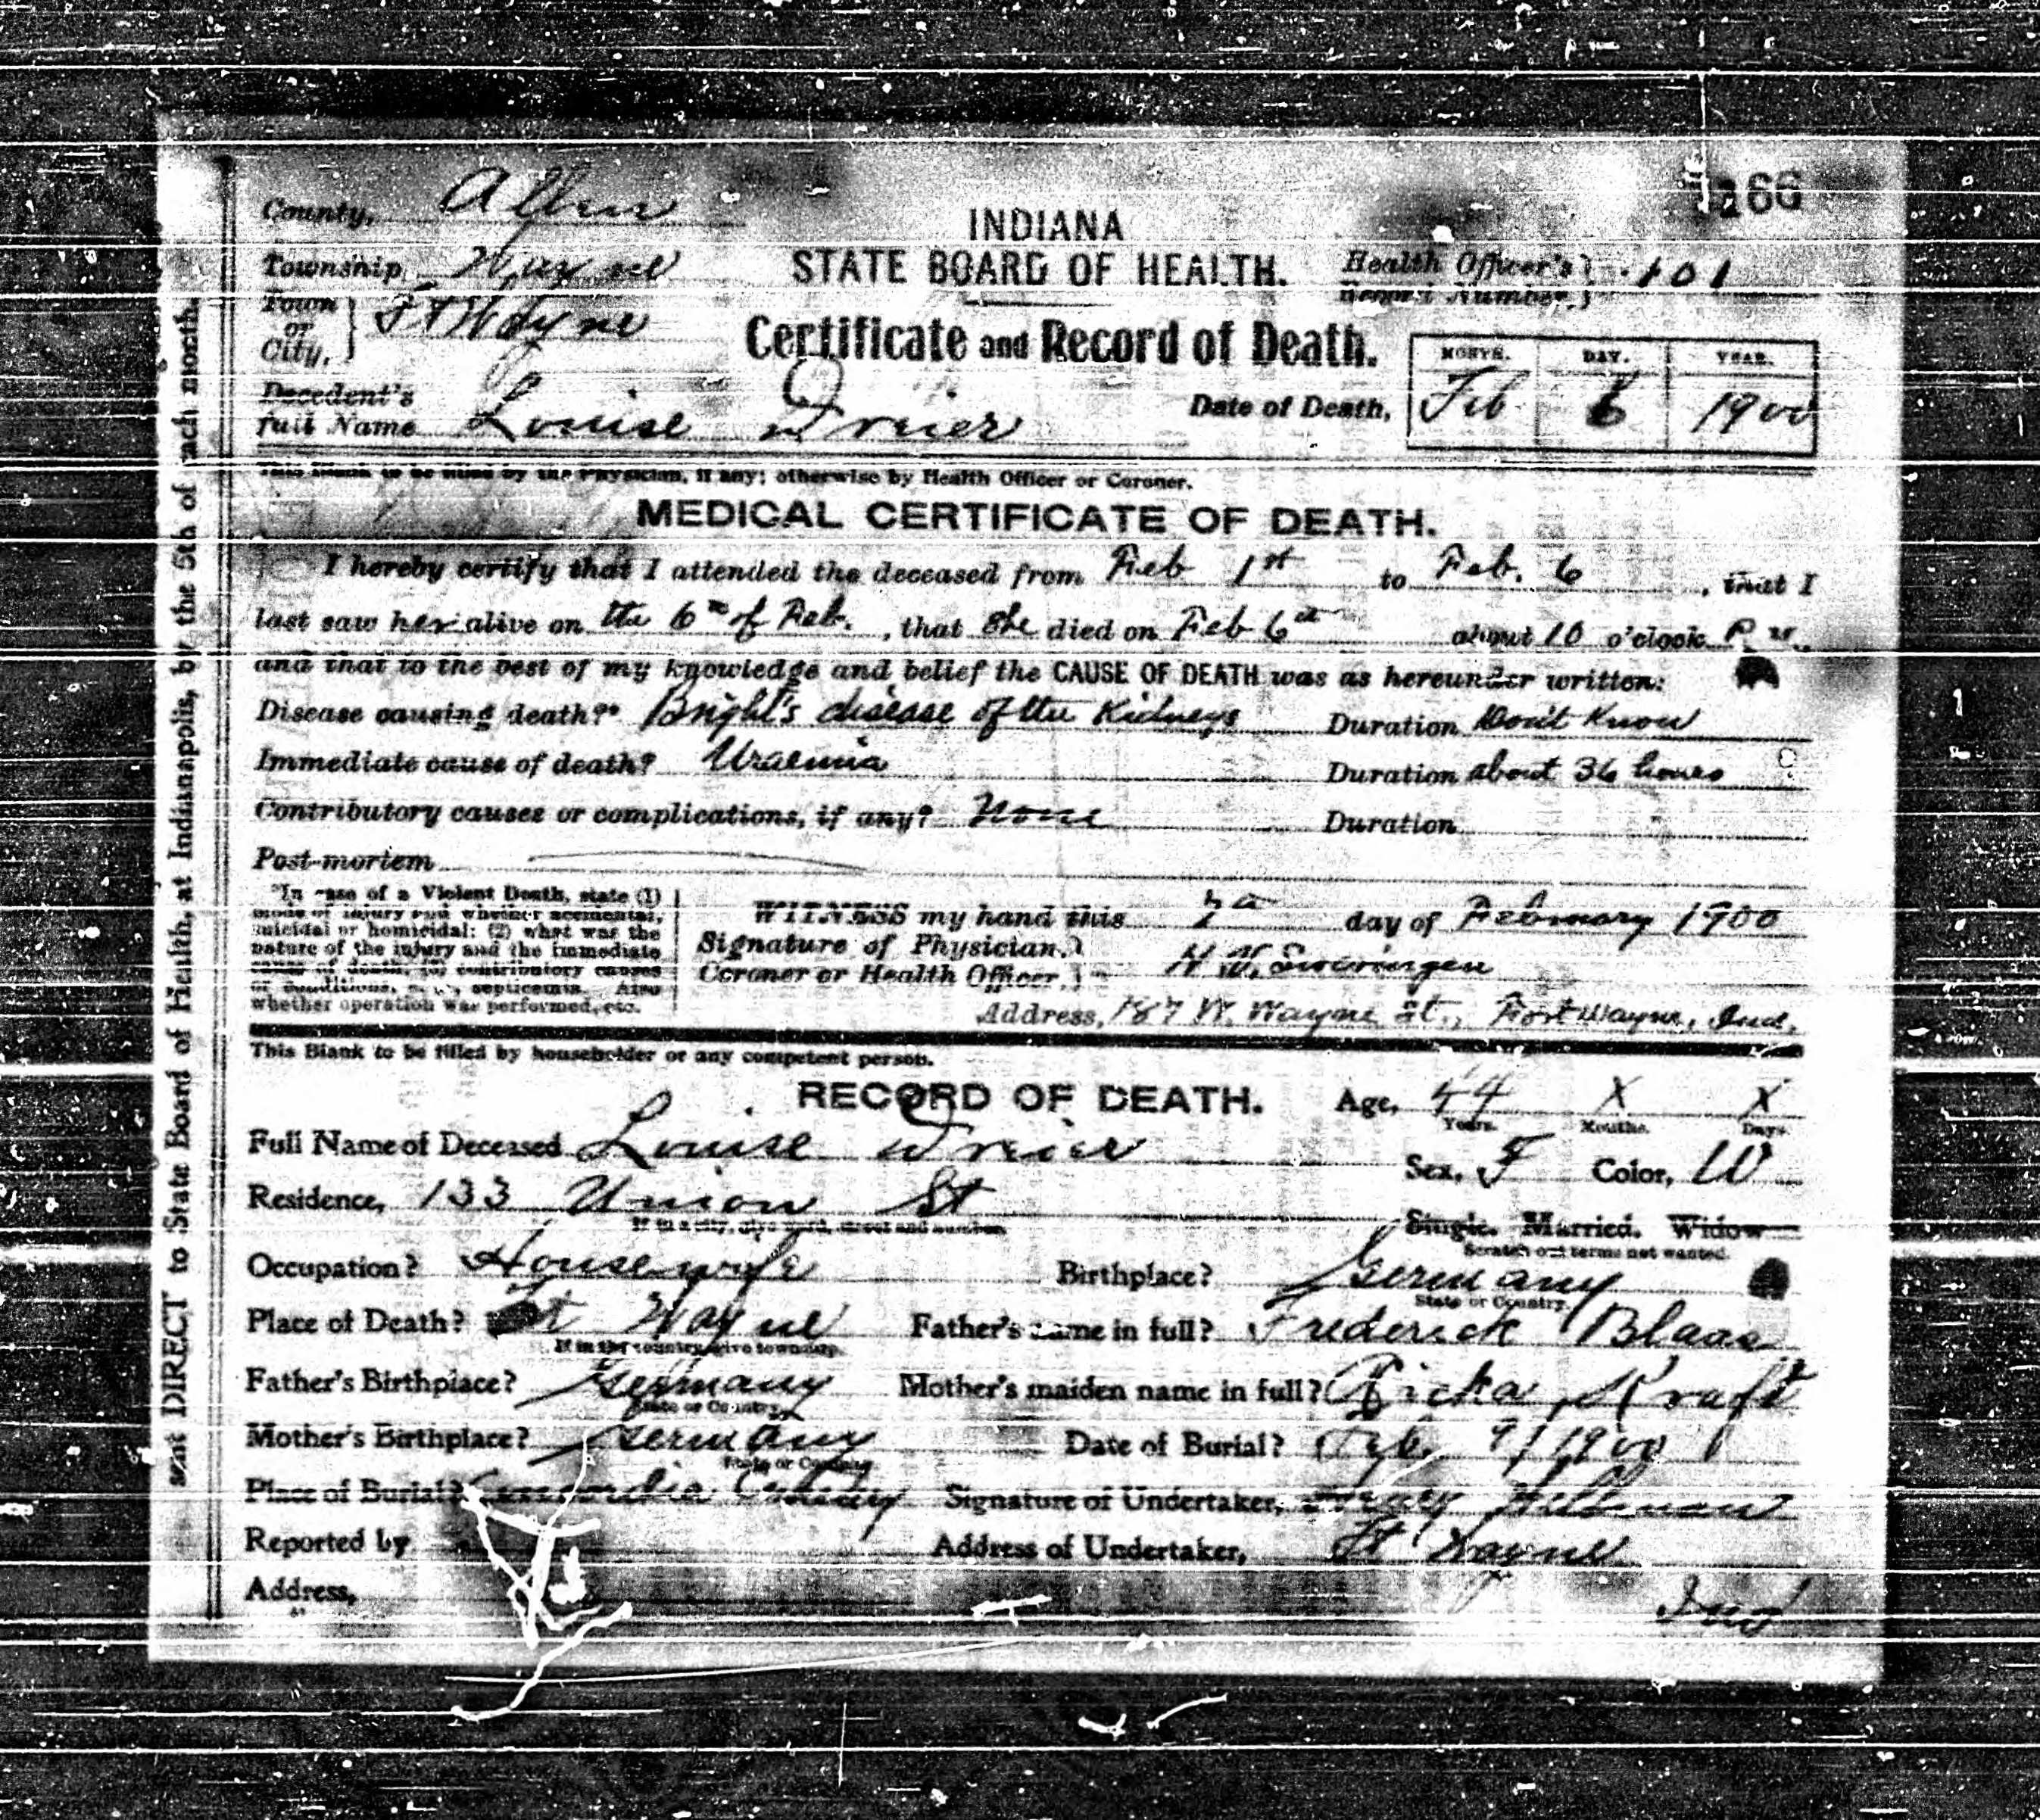 166
County, Allen
INDIANA
Township Wayne
STATE BOARD OF HEALTH.
Health Officer's Record Number, 101
Town or City, Ft Wayne
Certificate and Record of Death.
MONTH. DAY. YEAR.
Date of Death, Feb 6 1900
Decedent's full Name Louise Dreier
This Blank to be filled by the Physician, if any; otherwise by Health Officer or Coroner.
MEDICAL CERTIFICATE OF DEATH.
I hereby certify that I attended the deceased from Feb 1st to Feb. 6, that I
last saw her alive on the 6th of Feb., that she died on Feb 6th about 10 o'clock P M.
and that to the best of my knowledge and belief the CAUSE OF DEATH was as hereunder written:
Disease causing death?* Bright's disease of the Kidneys Duration Don't Know
Immediate cause of death? Uraemia Duration about 36 hours
Contributory causes or complications, if any? None Duration
Post-mortem
*In case of a Violent Death, state (1)
mode of injury and whether accidental,
suicidal or homicidal: (2) what was the
nature of the injury and the immediate
cause of death, (3) contributory causes
or conditions, septicemia. Also
whether operation was performed, etc.
WITNESS my hand this 7th day of February 1900
Signature of Physician, Coroner or Health Officer, H. V. Sweringen
Address, 187 W. Wayne St., Fort Wayne, Ind.
This Blank to be filled by householder or any competent person.
RECORD OF DEATH.
Age, 44 X X
Years. Months. Days.
Full Name of Deceased Louise Dreier
Sex, F Color, W
Residence, 133 Union St
If in a city, give ward, street and number.
Single. Married. Widow
Scratch out terms not wanted.
Occupation? Housewife Birthplace? Germany
State or Country.
Place of Death? Ft Wayne Father's name in full? Frederick Blaas
If in the country, give township.
Father's Birthplace? Germany Mother's maiden name in full? Ricka Kraft
State or Country.
Mother's Birthplace? Germany Date of Burial? Feb. 9/1900
State or Country.
Place of Burial? Concordia Cemetery Signature of Undertaker,
Reported by Address of Undertaker, Ft Wayne
Address, Ind
sent DIRECT to State Board of Health, at Indianapolis, by the 5th of each month.